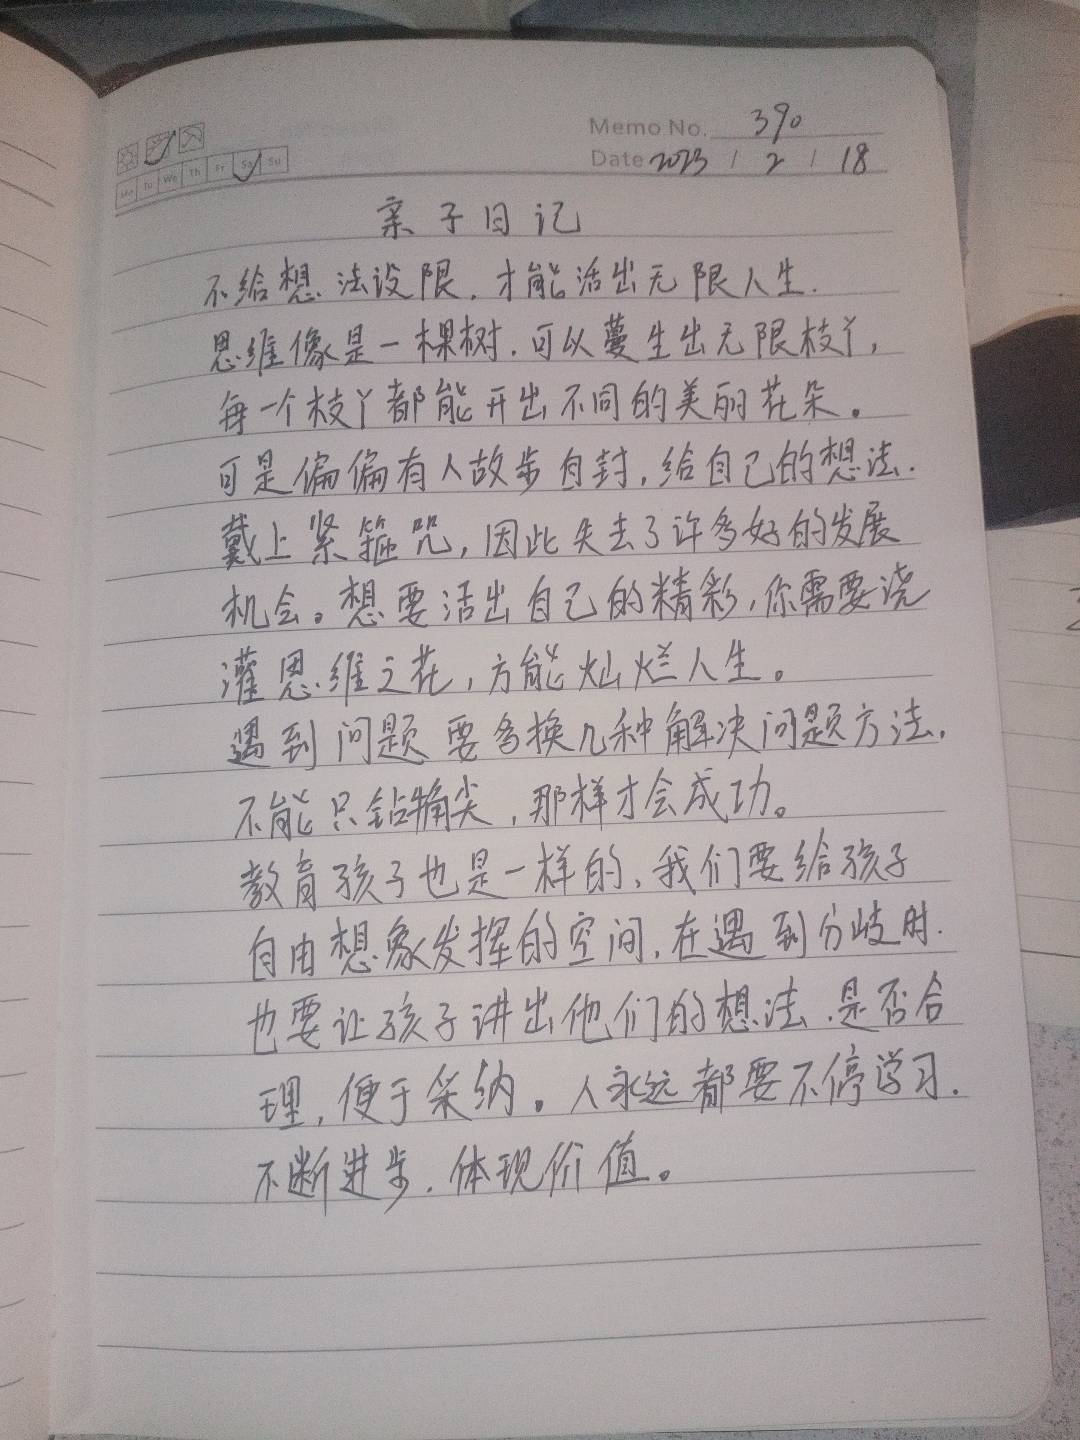 Memo No. 390
Mo Tu We Th Fr Sa Su
Date 2023 / 2 / 18
亲子日记
不给想法设限，才能活出无限人生.
思维像是一棵树，可以蔓生出无限枝丫，
每一个枝丫都能开出不同的美丽花朵。
可是偏偏有人故步自封，给自己的想法.
戴上紧箍咒，因此失去了许多好的发展
机会。想要活出自己的精彩，你需要浇
灌思维之花，方能灿烂人生。
遇到问题要多换几种解决问题方法，
不能只钻牛角尖，那样才会成功。
教育孩子也是一样的，我们要给孩子
自由想象发挥的空间，在遇到分歧时.
也要让孩子讲出他们的想法，是否合
理，便于采纳。人永远都要不停学习.
不断进步，体现价值。